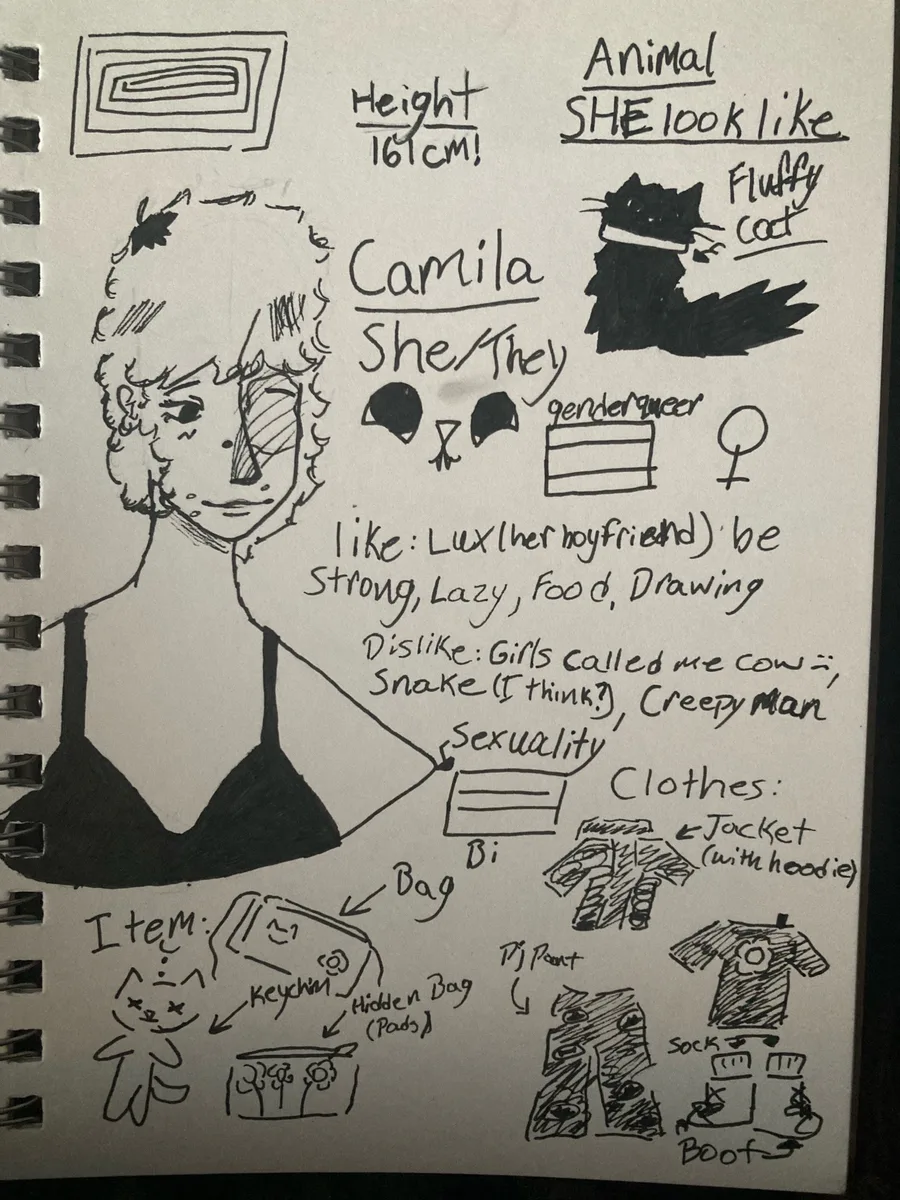 Height
161 cm!
Animal
SHE look like
Fluffy
cat
Camila
She/They
genderqueer
like: Lux (her boyfriend) be
Strong, Lazy, Food, Drawing
Dislike: Girls called me cow :(,
Snake (I think?), Creepy man
Sexuality
Bi
Clothes:
Jacket
(with hoodie)
Bag
Item:
Keychin
Hidden Bag
(Pads)
Pj Pant
Sock
Boot